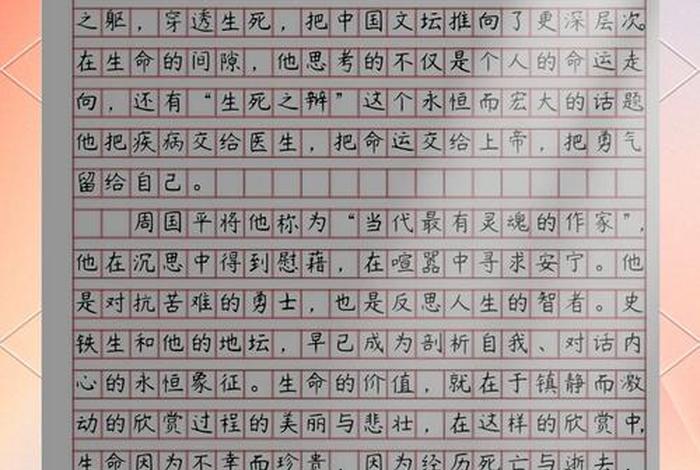 之躯，穿透生死，把中国文坛推向了更深层次。
在生命的间隙，他思考的不仅是个人的命运走
向，还有“生死之辩”这个永恒而宏大的话题
他把疾病交给医生，把命运交给上帝，把勇气
留给自己。
周国平将他称为“当代最有灵魂的作家”，
他在沉思中得到慰藉，在喧嚣中寻求安宁。他
是对抗苦难的勇士，也是反思人生的智者。史
铁生和他的地坛，早已成为剖析自我、对话内
心的永恒象征。生命的价值，就在于镇静而激
动的欣赏过程的美丽与悲壮，在这样的欣赏中，
生命因为不幸而珍贵，因为经历死亡与逝去